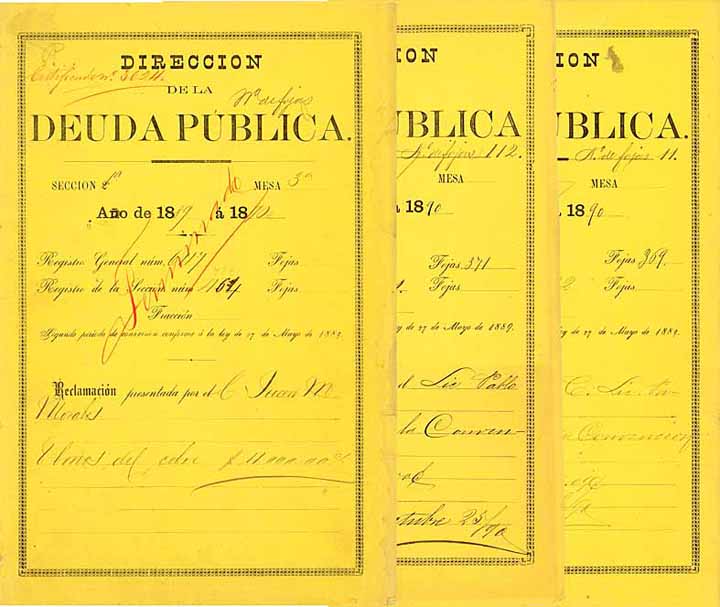 DIRECCION
Certificado nº 3624.
DE LA
Nº de fojas
DEUDA PÚBLICA.
SECCION MESA 3ª
Año de 1889 á 18
Terminado
Registro General núm. 6217 Fojas
Registro de la Sección núm. 1764 Fojas
Fracción
Segundo período de conversion conforme á la ley de 27 de Mayo de 1889.
Reclamación presentada por el C. Juan M.
Morales
Bonos del cobre $ 11.000.00
ION
ÚBLICA
Nº de fojas 112.
MESA
1890
Fojas 371
Fojas
ey de 27 de Mayo de 1889.
el Lic Pablo
la Conven-
ctubre 25/90
ION
ÚBLICA.
Nº de fojas 11.
MESA
1890
Fojas 369.
Fojas
ley de 27 de Mayo de 1889.
C. Lic.
Convencion